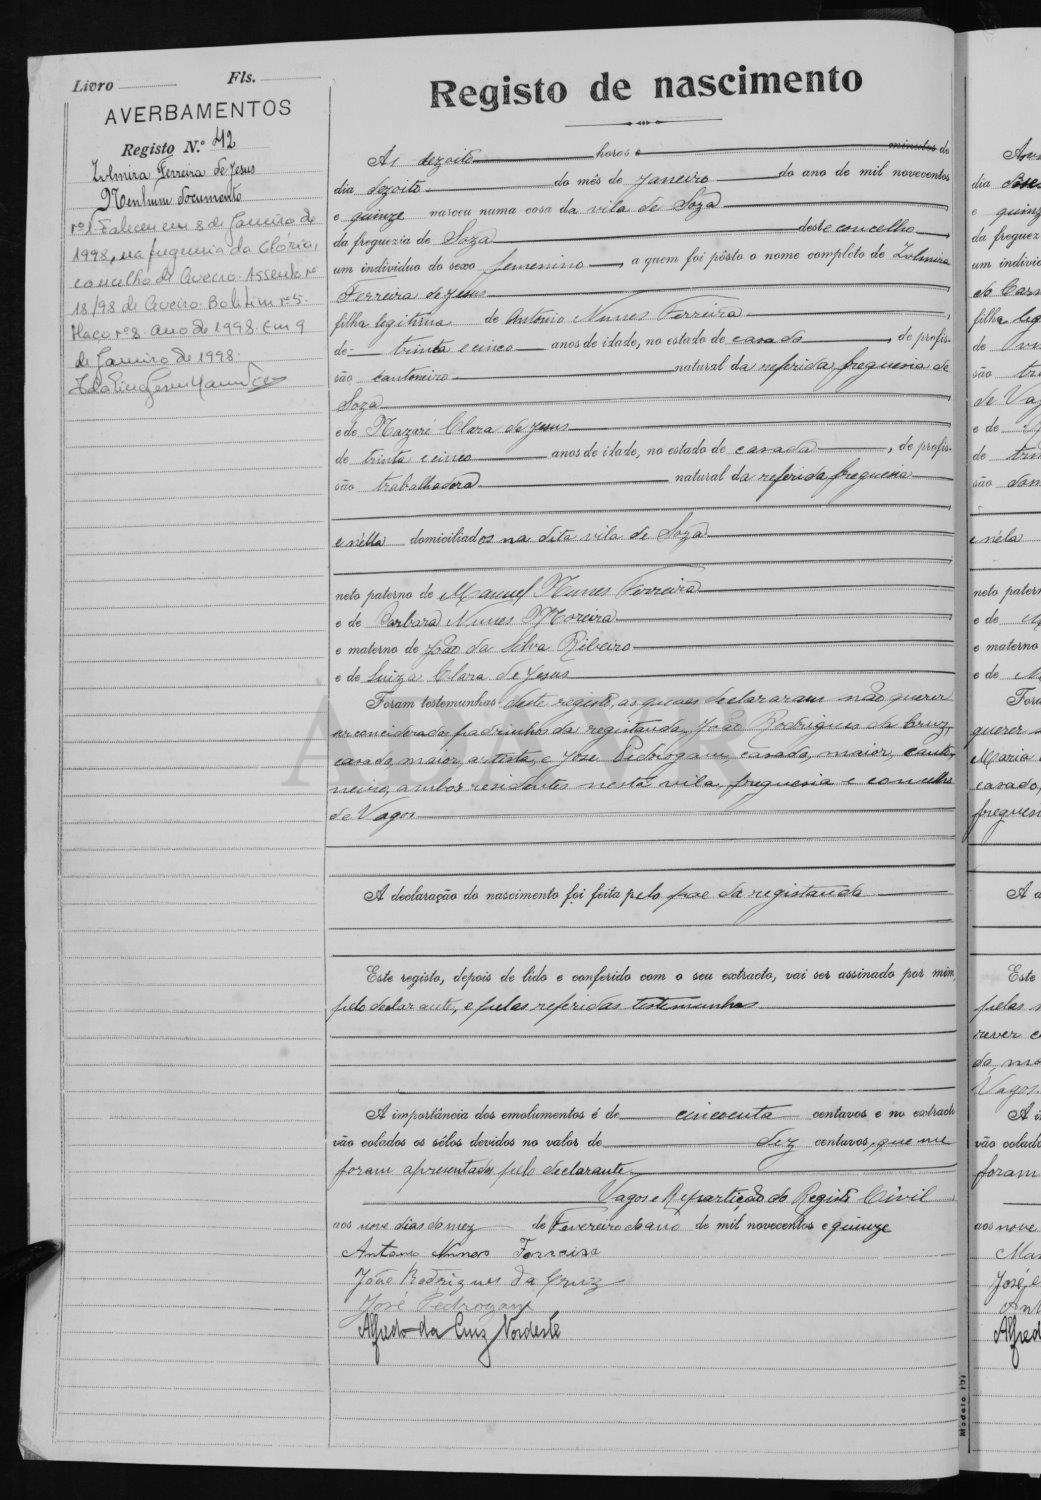 Livro Fls.
AVERBAMENTOS
Registo N.º 42
Zulmira Ferreira de Jesus
Nenhum documento
nº1 Faleceu em 8 de Janeiro de
1998, na freguesia da Glória,
concelho de Aveiro. Assento nº
18/98 de Aveiro. Boletim nº 5.
Maço nº 8. Ano de 1998. Em 9
de Janeiro de 1998.
Registo de nascimento
Ás dezoito horas e minutos do
dia dezoito do mês de Janeiro do ano de mil novecentos
e quinze nasceu numa casa da vila de Soza
da freguezia de Soza deste concelho,
um individuo do sexo femenino, a quem foi pôsto o nome completo de Zulmira
Ferreira de Jesus
filha legitima de Antonio Nunes Ferreira,
de trinta e cinco anos de idade, no estado de casado, de profis-
são cantoneiro natural da referida freguesia de
Soza
e de Nazaré Clara de Jesus
de trinta e cinco anos de idade, no estado de casada, de profis-
são trabalhadora natural da referida freguesia
e nella domiciliados na dita vila de Soza
neto paterno de Manuel Nunes Ferreira
e de Barbara Nunes Moreira
e materno de João da Silva Ribeiro
e de Luiza Clara de Jesus
Foram testemunhas deste registo, as quaes declararam não querer
ser conciderados padrinhos da registanda, João Rodrigues da Cruz,
casado, maior, artista, e José Pedrogam, casado, maior, canto-
neiro, ambos residentes nesta vila, freguesia e concelho
de Vagos
A declaração do nascimento foi feita pelo pae da registanda
Este registo, depois de lido e conferido com o seu extracto, vai ser assinado por mim,
pelo declarante, e pelas referidas testemunhas
A importância dos emolumentos é de cincoenta centavos e no extracto
vão colados os sêlos devidos no valor de dez centavos, que me
foram apresentados pelo declarante.
Vagos e Repartição do Registo Civil
aos nove dias do mez de Fevereiro do ano de mil novecentos e quinze
Antonio Nunes Ferreira
João Rodrigues da Cruz
José Pedrogam
Alfredo da Cruz Nordeste
Modelo 101